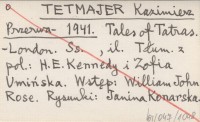 a TETMAJER Kazimierz
Przerwa- 1941. Tales of Tatras.
-London. Ss. , il. Tłum. z
pol: H. E. Kennedy i Zofia
Umińska. Wstęp: William John
Rose. Rysunki: Janina Konarska.